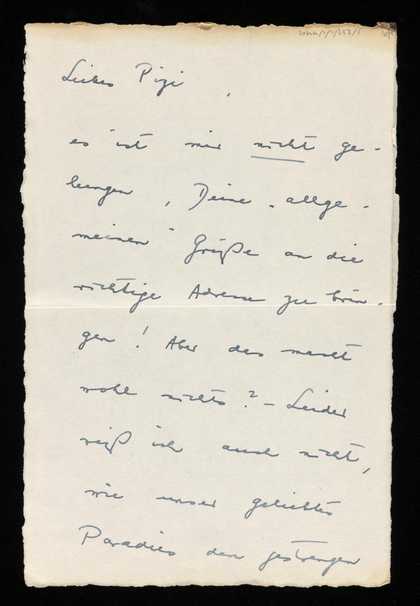 Liebes Pizi,
es ist mir nicht ge-
lungen, Deine „allge-
meinen" Grüße an die
richtige Adresse zu brin-
gen! Aber das macht
wohl nichts? – Leider
weiß ich auch nicht,
wie unser geliebtes
Paradies den gestrengen